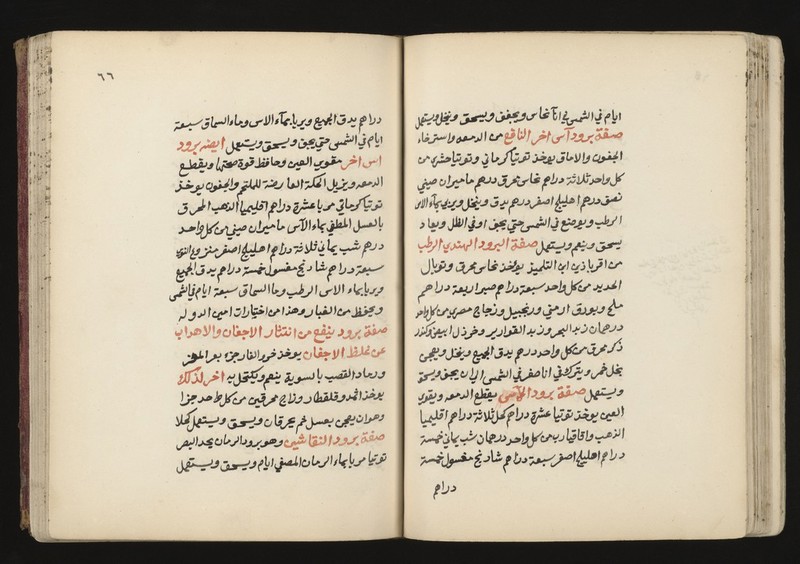 ايام في الشمس في اناء نحاس ويجفف ويسحق وينخل ويستعمل
صفة برود آس اخر النافع من الدمعه واسترخاء
الجفون والاماق يوخذ توتيا كرماني وتوتيا حشري من
كل واحد ثلاثة دراهم نحاس محرق درهم ماميران صيني
نصف درهم اهليلج اصفر درهم يدق وينخل ويربى بماء الاس
الرطب ويوضع في الشمس حتى يجف او في الظل ويعاد
يسحق وينعم ويستعمل صفة البرود الهندي الرطب
من اقرباذين ابن التلميذ يوخذ نحاس محرق وتوبال
الحديد من كل واحد سبعة دراهم صبر اربعة دراهم
ملح وبورق ارمني وزنجبيل وزجاج مصري من كل واحد
درهمان زبد البحر وزبد القوارير وخردل ابيض وكندر
ذكر محرق من كل واحد درهم يدق الجميع وينخل ويعجن
بخل خمر ويترك في انا صفر في الشمس الى ان يجف ويسحق
ويستعمل صفة برود الآسي يقطع الدمعه ويقوي
العين يوخذ توتيا عشرة دراهم كحل ثلاثة دراهم اقليميا
الذهب واقاقيا ربـ من كل واحد درهمان شب يماني خمسة
دراهم اهليلج اصفر سبعة دراهم شادنج مغسول خمسة
دراهم
٦٦
دراهم يدق الجميع ويربا بمآء الاس وماء السماق سبعة
ايام في الشمس حتى يجف ويسحق ويستعمل ايضه برود
اس اخر مقوي العين وحافظ قوة صحتها ويقطع
الدمعه ويزيل الحكة العارضة للملتحم والجفون يوخذ
توتيا كرماني مربا عشرة دراهم اقليميا الذهب المحرق
بالعسل المطفي بماء الآس ماميران صيني من كل واحد
درهم شب يماني ثلاثة دراهم اهليلج اصفر منزوع النوى
سبعة دراهم شادنج مغسول خمسة دراهم يدق الجميع
ويربا بماء الاس الرطب وما السماق سبعة ايام في الشمس
ويحفظ من الغبار وهذا من اختيارات امين الدوله
صفة برود ينفع من انتثار الاجفان والاهداب
عن غلظ الاجفان يوخذ خرو الفار جزء بعر المعز
ورماد القصب بالسوية ينعم ويكتحل به اخر لذلك
يوخذ اثمد وقلقطار وزاج محرقين من كل واحد جزا
وهو ان يعجن بعسل ثم يحرقان ويسحق ويستعمل كحلا
صفة برود النقاشين وهو برود الرمان يحد البصر
توتيا مربا بماء الرمان المصفي ايام ويسحق ويستعمل